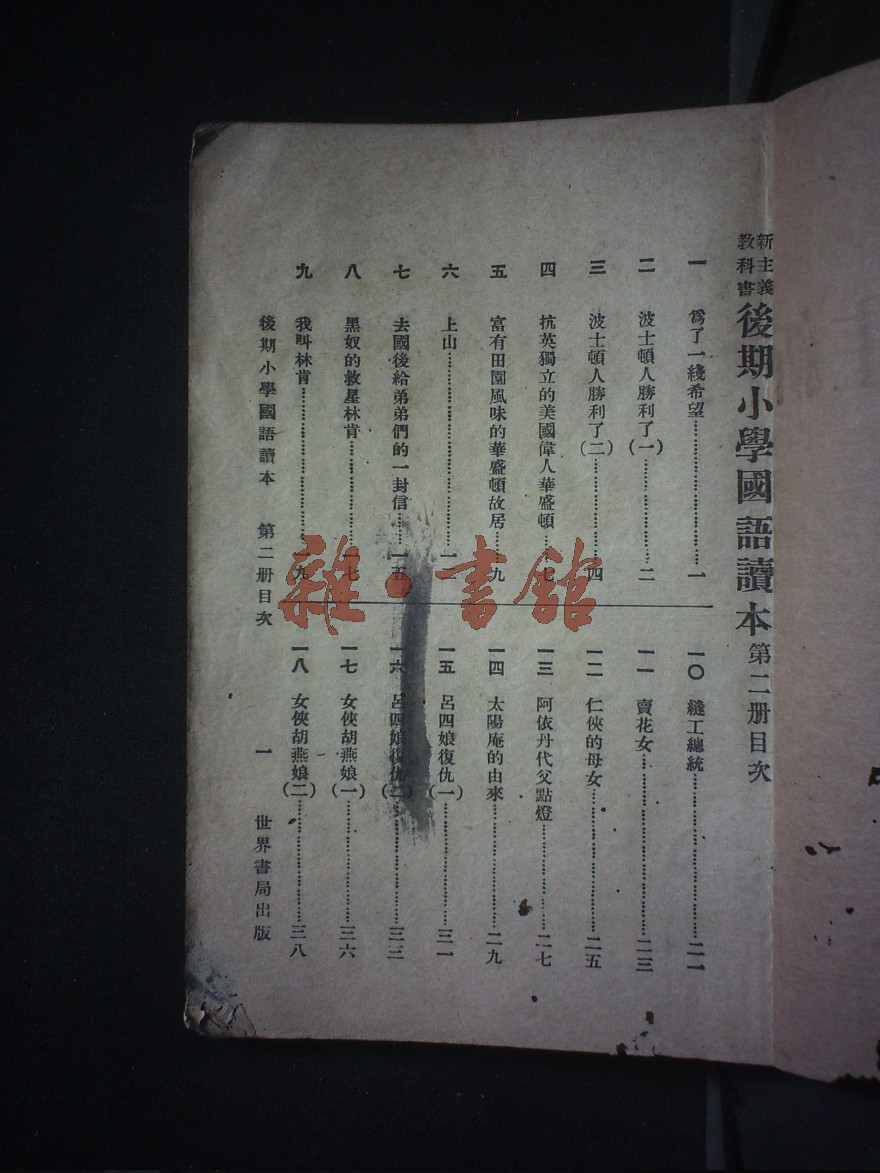 新主義
教科書
後期小學國語讀本第二册目次
一 爲了一綫希望……一
二 波士頓人勝利了(一)……二
三 波士頓人勝利了(二)……四
四 抗英獨立的美國偉人華盛頓……七
五 富有田園風味的華盛頓故居……九
六 上山……一
七 去國後給弟弟們的一封信……一五
八 黑奴的救星林肯……一七
九 我叫林肯……一九
一〇 縫工總統……二一
一一 賣花女……二三
一二 仁俠的母女……二五
一三 阿依丹代父點燈……二七
一四 太陽庵的由來……二九
一五 呂四娘復仇(一)……三一
一六 呂四娘復仇(二)……三三
一七 女俠胡燕娘(一)……三六
一八 女俠胡燕娘(二)……三八
後期小學國語讀本 第二册目次 一 世界書局出版
雜·書館